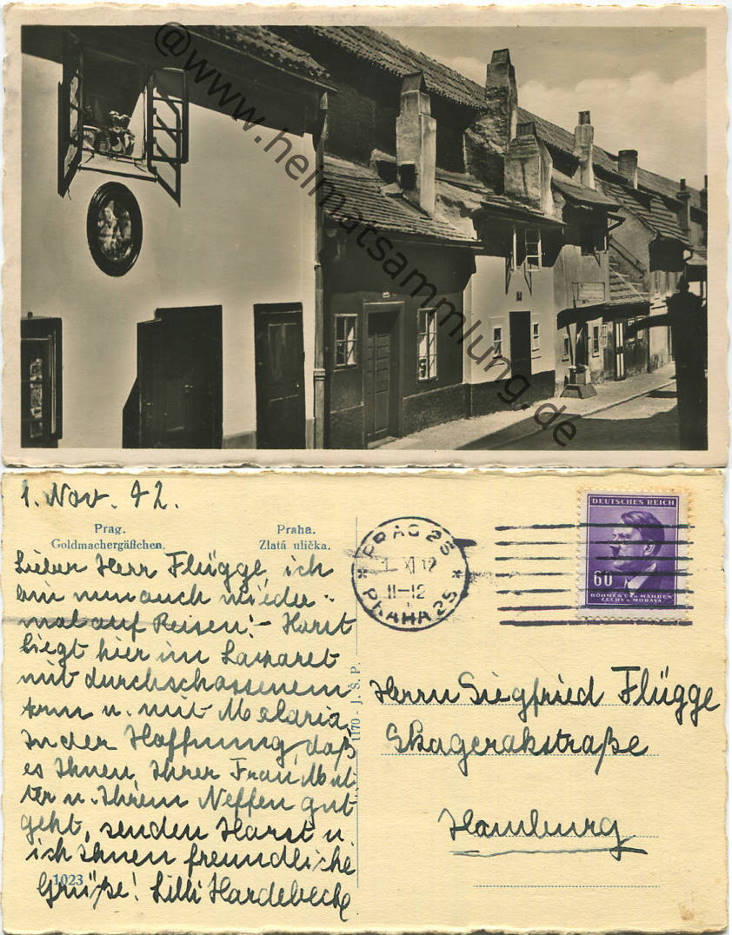 @www.heimatsammlung.de
1. Nov. 42.
Prag.
Goldmachergäßchen.
Praha.
Zlatá ulička.
Lieber Herr Flügge, ich
bin nun auch wieder-
mal auf Reisen! - Horst
liegt hier im Lazaret
mit durchschossenem
Arm u. mit Malaria.
In der Hoffnung, daß
es Ihnen, Ihrer Frau Mut-
ter u. Ihrem Neffen gut
geht, senden Horst u.
ich Ihnen freundliche
Grüße! Lilli Hardebeck
1023
1170 - J. S. P.
PRAG 25
1. XI 42
11-12
PRAHA 25
DEUTSCHES REICH
60
BÖHMEN UND MÄHREN
ČECHY A MORAVA
Herrn Siegfried Flügge
Skagerakstraße
Hamburg